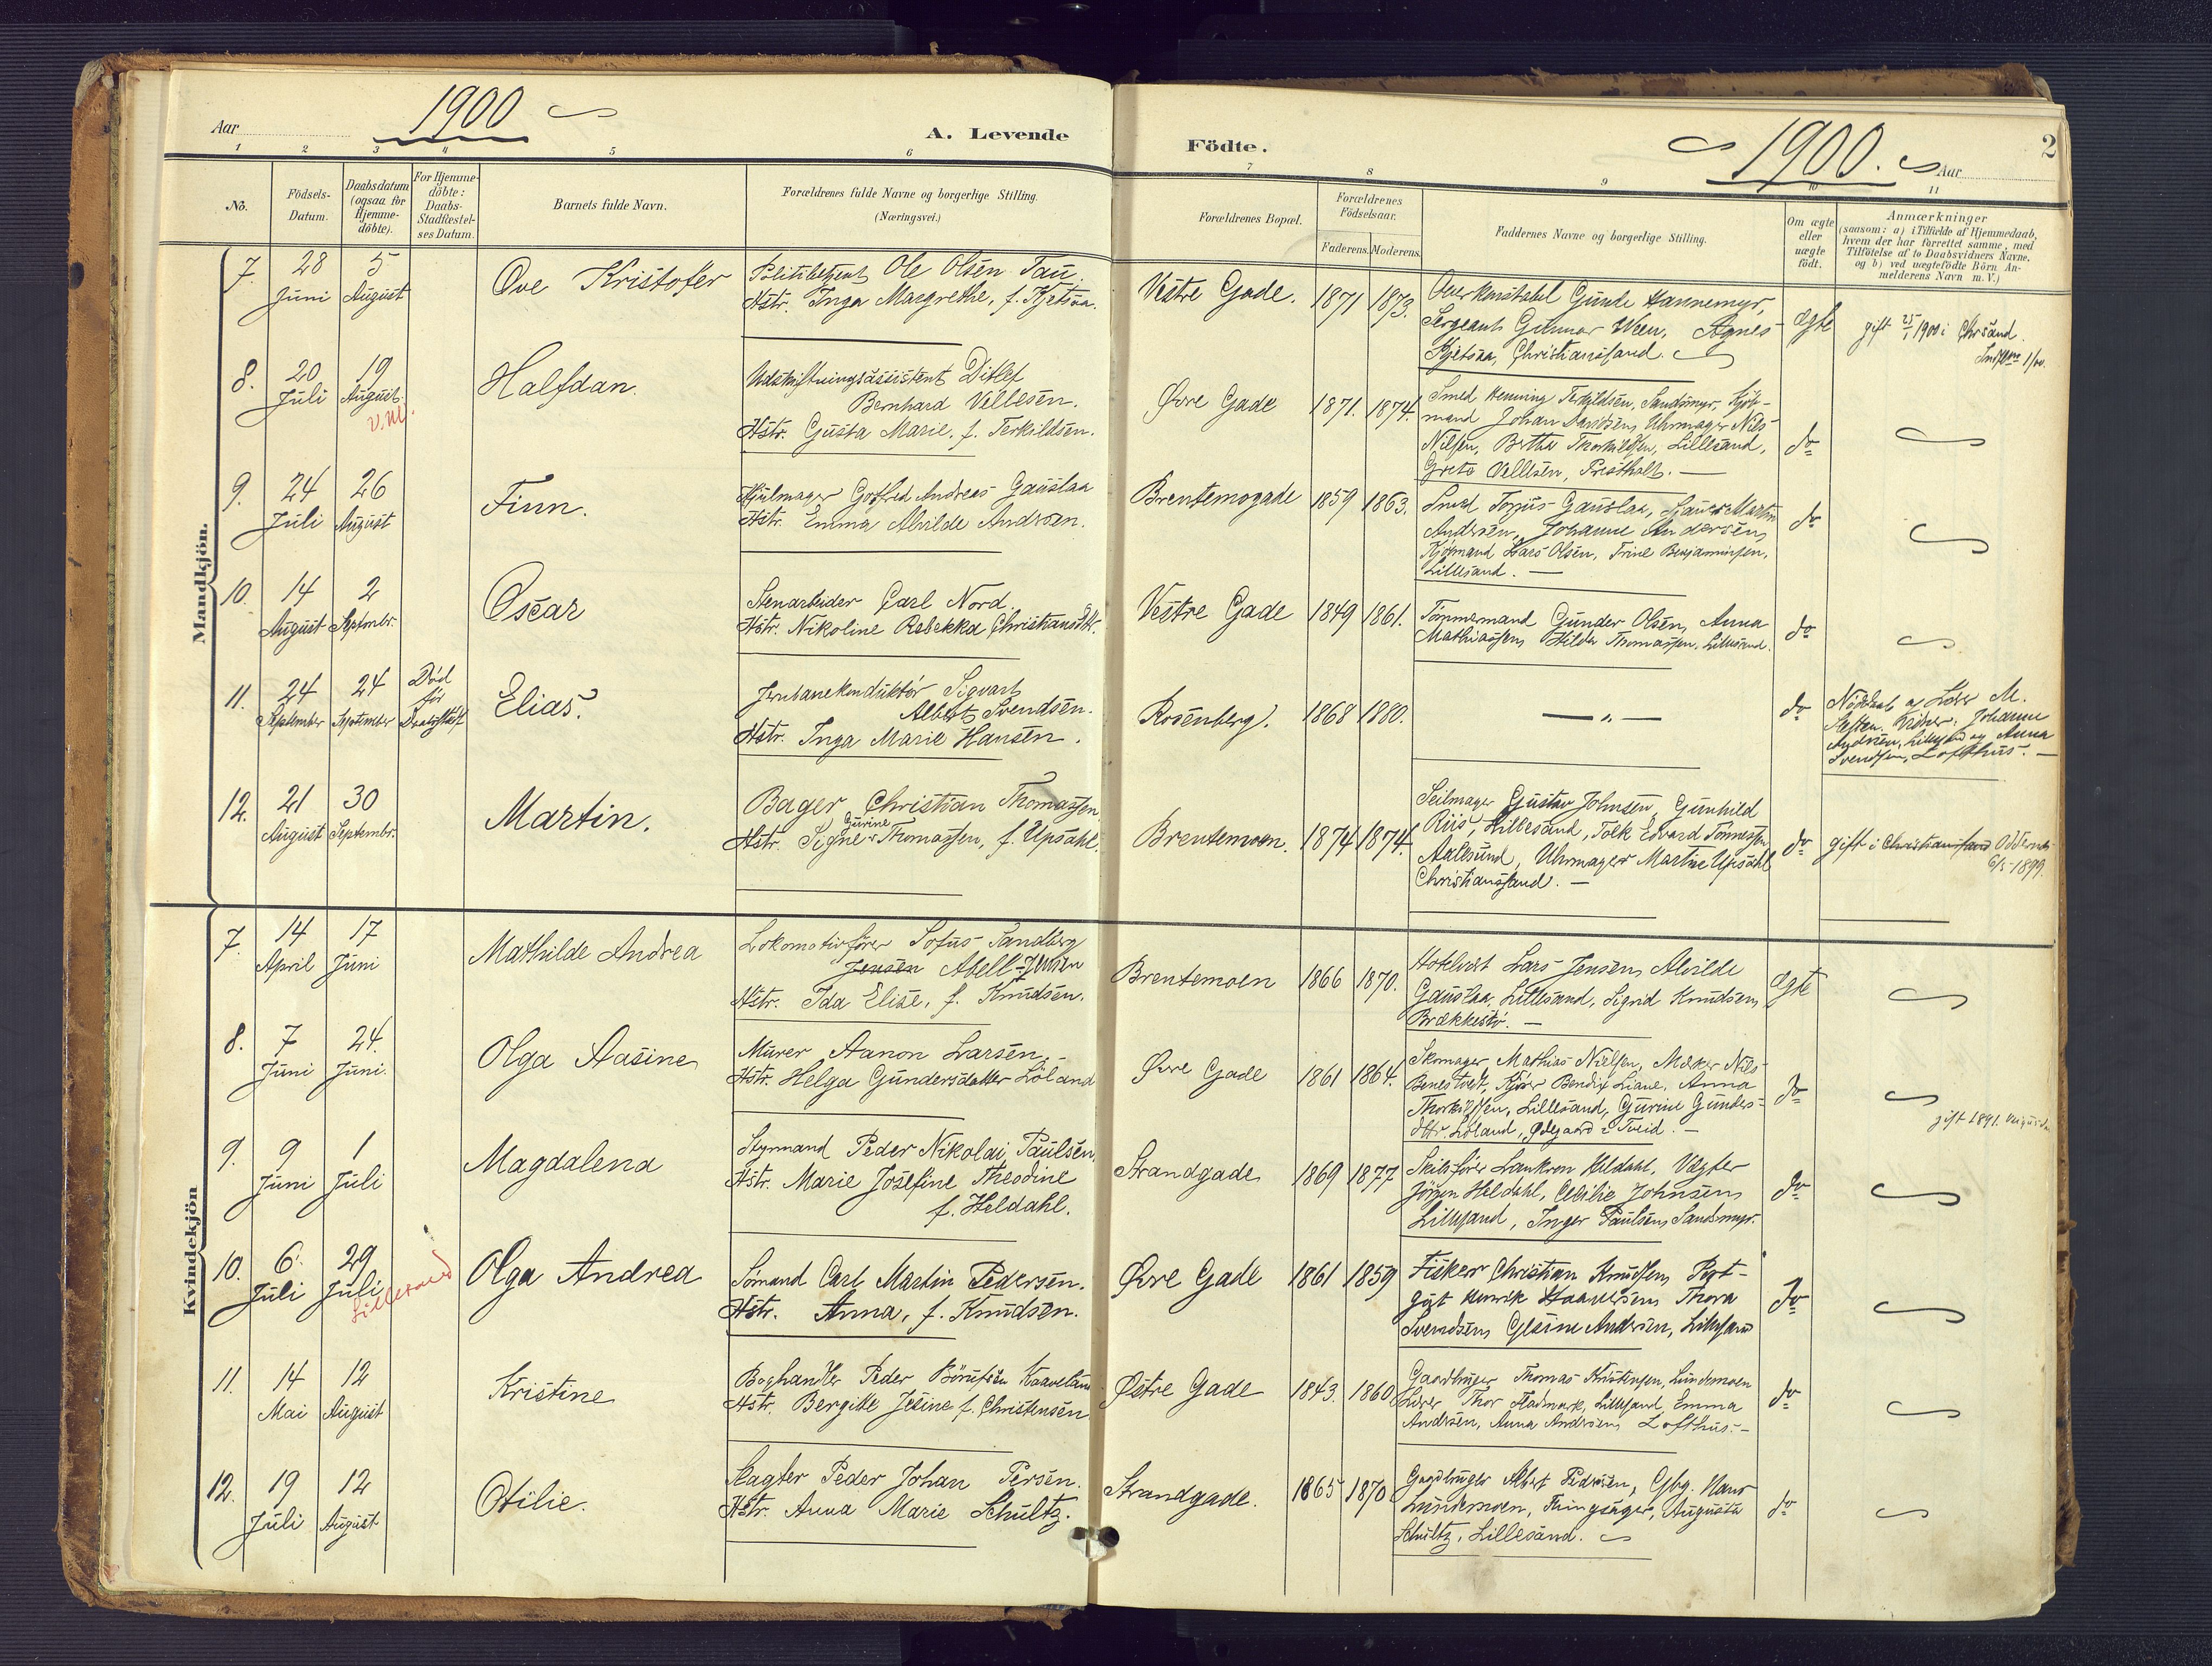 Aar 1900
A. Levende
Födte.
1900. Aar
2
1 2 3 4 5 6 7 8 9 10 11
No.
Födsels-
Datum.
Daabsdatum
(ogsaa for
Hjemme-
döbte).
For Hjemme-
döbte:
Daabs-
Stadfæstel-
ses Datum.
Barnets fulde Navn.
Forældrenes fulde Navne og borgerlige Stilling.
(Næringsvei.)
Forældrenes Bopæl.
Forældrenes
Födselsaar.
Faderens. Moderens.
Faddernes Navne og borgerlige Stilling.
Om ægte
eller
uægte
födt.
Anmærkninger
(saasom: a) i Tilfælde af Hjemmedaab,
hvem der har forrettet samme, med
Tilföielse af to Daabsvidners Navne,
og b) ved uægtefödte Börn An-
melderens Navn m. V.)
Mandkjön.
7. 28 Juni 5 August
Ove Kristofer
Politibetjent Ole Olsen Tau.
Hstr. Inga Margrethe, f. Kjetsaa.
Vestre Gade. 1871 1873.
Overkonstabel Gunde Hannemyr,
Sergeant Gunnar Ween, Agnes
Kjetsaa, Christianssand.
ægte
gift 1900 i Chrsand.
8. 20 Juli 19 August
Halfdan.
Udskiftningsassistent Ditlef
Bernhard Vellesen.
Hstr. Gusta Marie, f. Terkildsen.
Øvre Gade 1871. 1874.
Smed Henning Terkildsen, Sandsmyr, Kjöb-
mand Johan Uhrmager Nils
Nilsen, Berthe Lillesand,
Grete Vellesen,
do
9. 24 Juli 26 August
Finn.
Hjulmager Gotfred Andreas Gauslaa
Hstr. Emma Alvilde Andersen.
Brentemogade 1859 1863.
Smed Torjus Gauslaa, Martin
Andersen, Johanne Andersen,
Kjöbmand Lars Olsen, Trine Benjaminsen,
Lillesand.
do
10. 14 August 2 Septembr.
Oscar
Stenarbeider Carl Nord.
Hstr. Nikoline Rebekka Christiansdtr.
Vestre Gade 1849 1861.
Tömmermand Gunder Olsen, Anna
Mathiassen, Hilda Thomassen, Lillesand.
do
11. 24 September 24 September
Död
för
Elias.
Jernbanekonduktör Sigvart
Albert Svendsen.
Hstr. Inga Marie Hansen.
Rosenberg. 1868 1880.
— „ —
do
Nöddaab af M.
Johanne
Andersen, Lillesand og Anna
Svendsen, Lofthus.
12. 21 August 30 Septembr.
Martin.
Bager Christian Thomassen
Gurine
Hstr. Signe Thomassen, f. Upsahl.
Brentemoen. 1874 1874.
Seilmager Gustav Johnsen, Gunhild
Riis, Lillesand, Tolk Edvard Tönnessen
Aalesund, Uhrmager Martin Upsahl
Christianssand.
do
gift i Christianssand Oddernes
6/5-1899.
Kvindekjön
7. 14 April 17 Juni
Mathilde Andrea
Lokomotivförer Sofus Sandberg
Jensen Abell-Jensen
Hstr. Ida Elise, f. Knudsen.
Brentemoen 1866 1870.
Hotelvert Lars Jensen, Alvilde
Gauslaa, Lillesand, Signd Knudsen,
Brækkestö.
ægte
8. 7 Juni 24. Juni.
Olga Aasine
Murer Aanon Larsen,
Hstr. Helga Gundersdatter Löland
Øvre Gade 1861 1864.
Skomager Mathias Nielsen, Nils
Anna
Lillesand, Gurine Gunders-
dtr. Löland, Ødegaard i Tveid.
do
gift 1891.
9. 9 Juni 1 Juli
Magdalena
Styrmand Peder Nikolai Paulsen,
Hstr. Marie Josefine Theodine
f. Heldahl.
Strandgade 1869 1877
Skibsförer Heldahl, Vægter
Jörgen Heldahl, Cecilie Johnsen,
Lillesand, Inger Paulsen, Sandsmyr.
do
10. 6. Juli 29 Juli
Lillesand
Olga Andrea
Sömand Carl Martin Pedersen.
Hstr. Anna, f. Knudsen.
Øvre Gade 1861 1859
Fisker Christian Knudsen,
Henrik Thora
Svendsen, Andersen, Lillesand
do
11. 14 Mai 12 August
Kristine
Boghandler Peder
Hstr. Bergitte Jesine f. Christensen
Østre Gade 1843. 1860
Gaardbruger Thomas Kristensen, Lundemoen
Thor Lillesand, Emma
Andersen, Anna Andersen, Lofthus.
do
12. 19 Juli 12 August
Otilie.
Slagter Peder Johan Persen.
Hstr. Anna Marie Schultz.
Strandgade. 1865 1870
Gaardbruger Albert Pedersen, Gbg. Hans
Lundemoen, Augusta
Schultz, Lillesand.
do